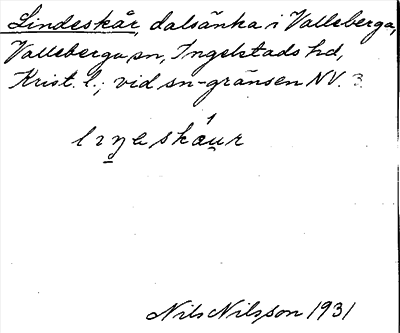 Lindeskår, dalsänka i Valleberga,
Valleberga sn, Ingelstads hd,
Krist. l.; vid sn-gränsen NV. 3.
lɪŋeskáuʀ
Nils Nilsson 1931